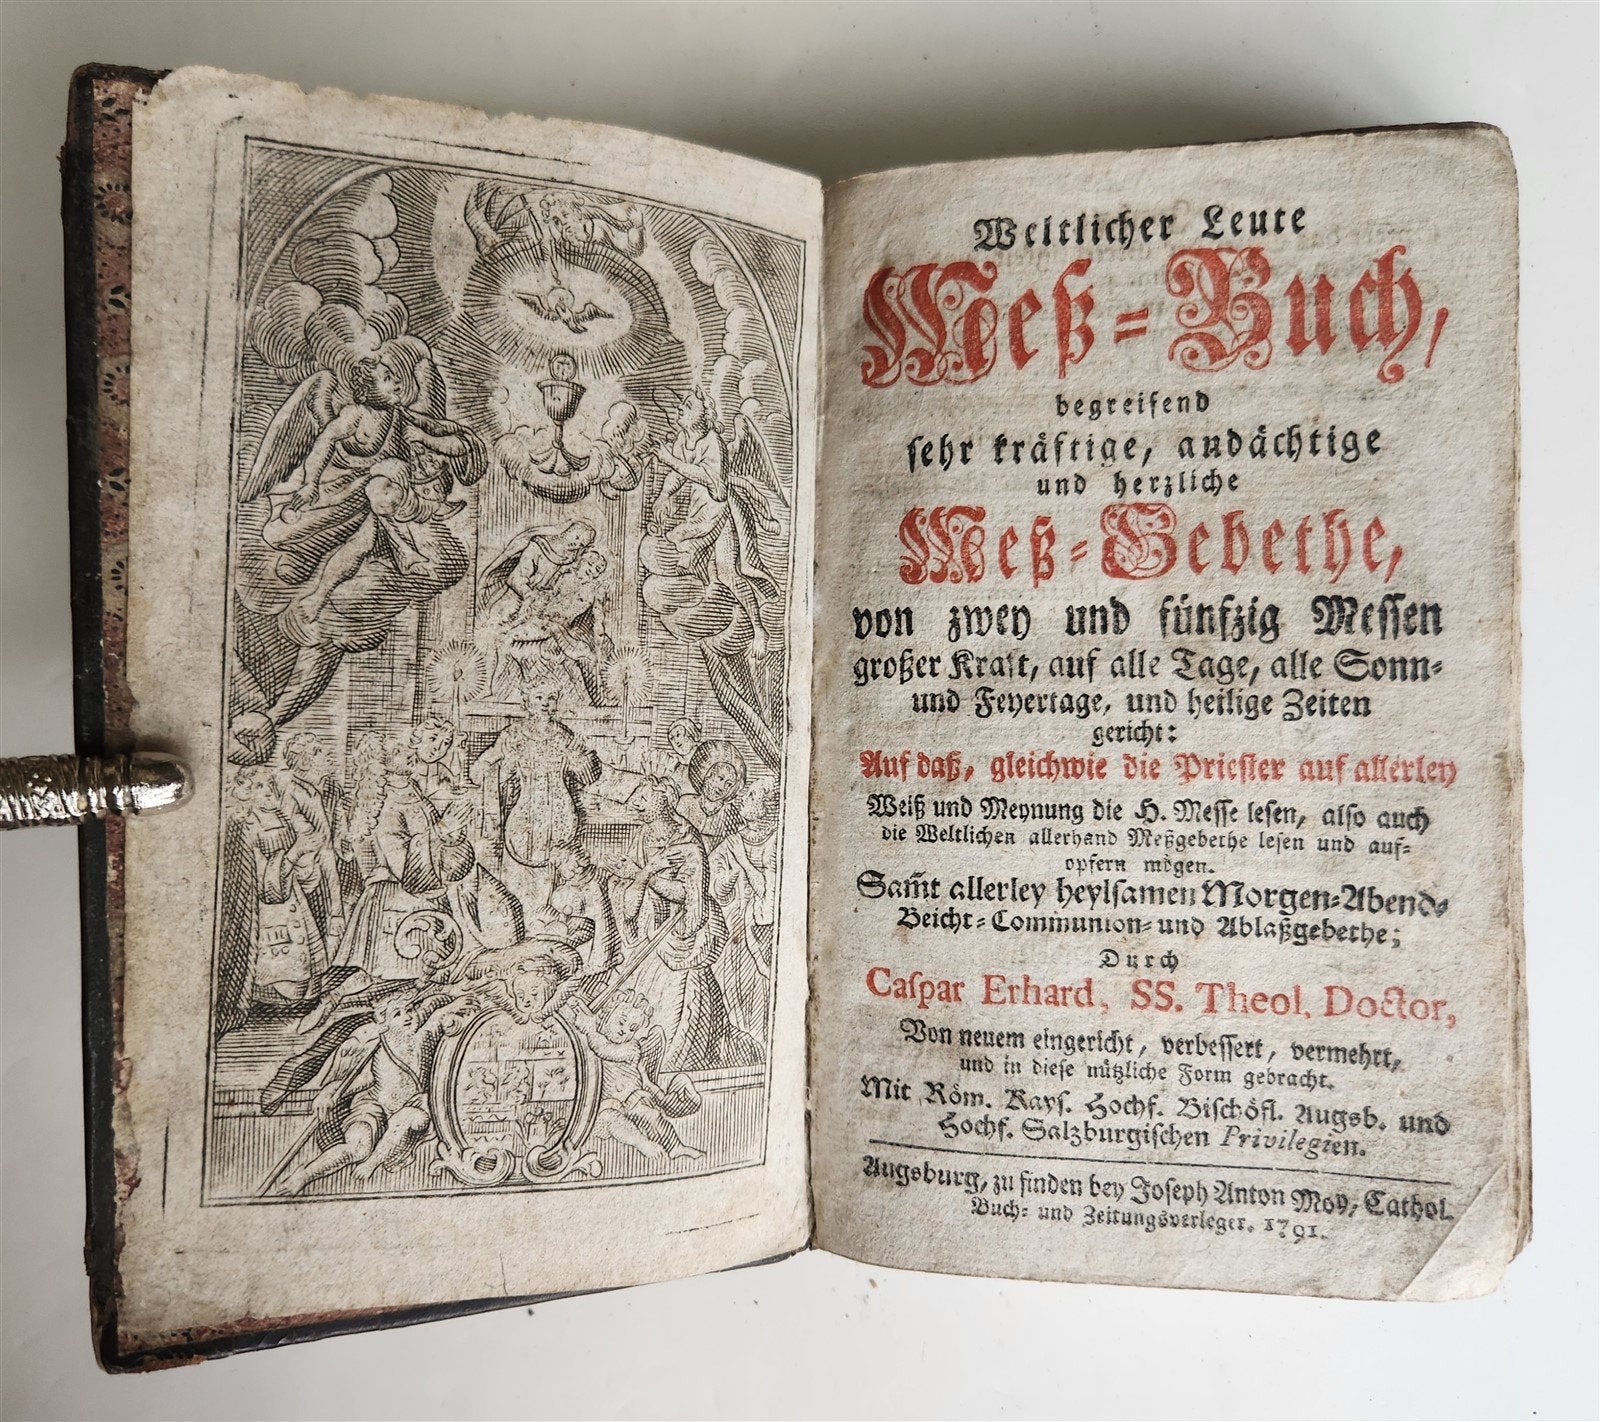 Weltlicher Leute
Meß-Buch,
begreifend
sehr kräftige, andächtige
und herzliche
Meß-Gebethe,
von zwey und fünfzig Messen
großer Kraft, auf alle Tage, alle Sonn-
und Feyertage, und heilige Zeiten
gericht:
Auf daß, gleichwie die Priester auf allerley
Weiß und Meynung die H. Messe lesen, also auch
die Weltlichen allerhand Meßgebethe lesen und auf-
opfern mögen.
Sam̃t allerley heylsamen Morgen-Abend-
Beicht-Communion-und Ablaßgebethe;
Durch
Caspar Erhard, SS. Theol. Doctor,
Von neuem eingericht, verbessert, vermehrt,
und in diese nützliche Form gebracht.
Mit Röm. Kays. Hochf. Bischöfl. Augsb. und
Hochf. Salzburgischen Privilegien.
Augsburg, zu finden bey Joseph Anton Moy, Cathol.
Buch- und Zeitungsverleger. 1791.